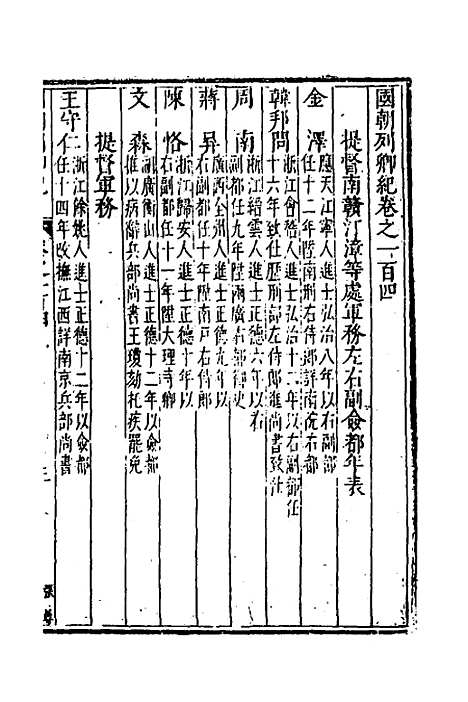 國朝列卿紀卷之一百四
提督南贛汀漳等處軍務左右副僉都年表
金澤 應天江寧人進士弘治八年以右副都
任十二年陞南刑右侍郎詳南院右都
韓邦問 浙江會稽人進士弘治十二年以右副都任
十六年致仕歷刑部左侍郎進尚書致仕
周南 浙江縉雲人進士正德六年以右
副都任九年陞兩廣右都御史
蔣昇 廣西全州人進士正德九年以
右副都任十年陞南戶右侍郎
陳恪 浙江歸安人進士正德十年以
右副都任十一年陞大理寺卿
文森 湖廣衡山人進士正德十二年以僉都
推以病辭兵部尚書王瓊劾托疾罷免
提督軍務
王守仁 浙江餘姚人進士正德十二年以僉都
任十四年改撫江西詳南京兵部尚書